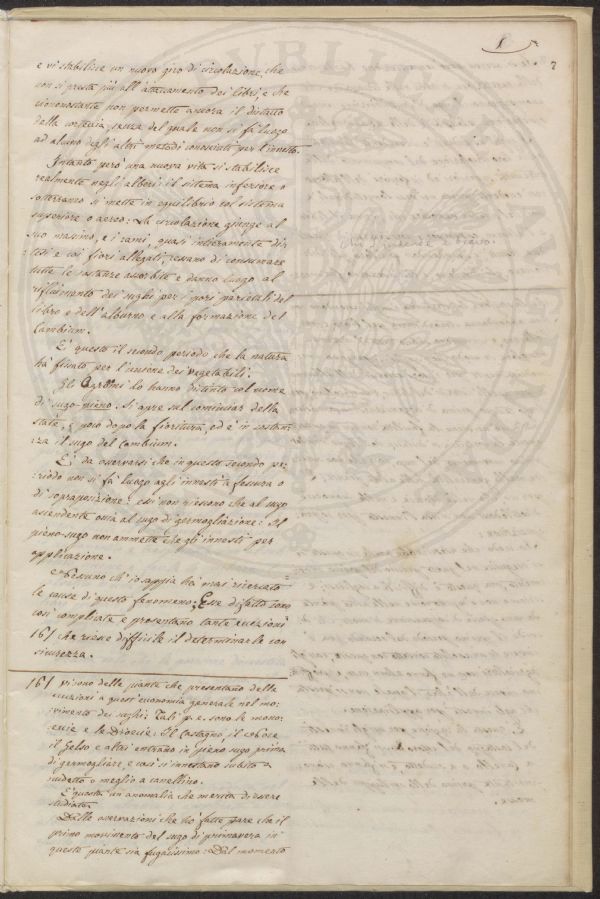 7
e vi stabilisce un nuovo giro di circolazione, che
non si presta più all'attaccamento dei libri, e che
ciononostante non permette ancora il distacco
della corteccia, senza del quale non si fà luogo
ad alcuno degli altri metodi conosciuti per l'innesto.
Intanto però una nuova vita si stabilisce
realmente negli alberi: il sistema inferiore o
sotterraneo si mette in equilibrio col sistema
superiore o aereo: La circolazione giunge al
suo massimo, e i rami, quasi intieramente dis-
tesi e coi fiori allegati, cessano di consumare
tutte le sostanze assorbite e danno luogo al
rifluimento dei sughi per i pori parietali del
libro e dell'alburno, e alla formazione del
Cambium.
E' questo il secondo periodo che la natura
ha fissato per l'unione dei vegetabili.
Gli Agronomi lo hanno distinto col nome
di sugo-pieno. Si apre sul cominciar della
state, e poco dopo la fioritura, ed è in sostan-
:za il sugo del Cambium.
E' da osservarsi che in questo secondo pe-
:riodo non si fà luogo agli innesti a fessura o
di soprapposizione: essi non riescono che al sugo
ascendente ossia al sugo di germogliazione: Il
pieno-sugo non ammette che gli innesti per
applicazione.
Nessuno ch'io sappia ha mai ricercato
le cause di questo fenomeno: Esse difatto sono
così complicate e presentano tante eccezioni
16/ che riesce difficile il determinarle con
sicurezza.
16/ vi sono delle piante che presentano delle
eccezioni a quest'economia generale nel mo-
:vimento dei sughi: Tali p. e. sono le mono-
:ecie e le Dioecie: Il Castagno, il
il Gelso e altri entrano in pieno sugo prima
di germogliare, e così si innestano subito a
scudetto o meglio a canellino.
E' questa un'anomalia che merita di essere
studiata.
Dalle osservazioni che ho fatte pare che il
primo movimento del sugo di primavera in
queste piante sia fugacissimo: Dal momento